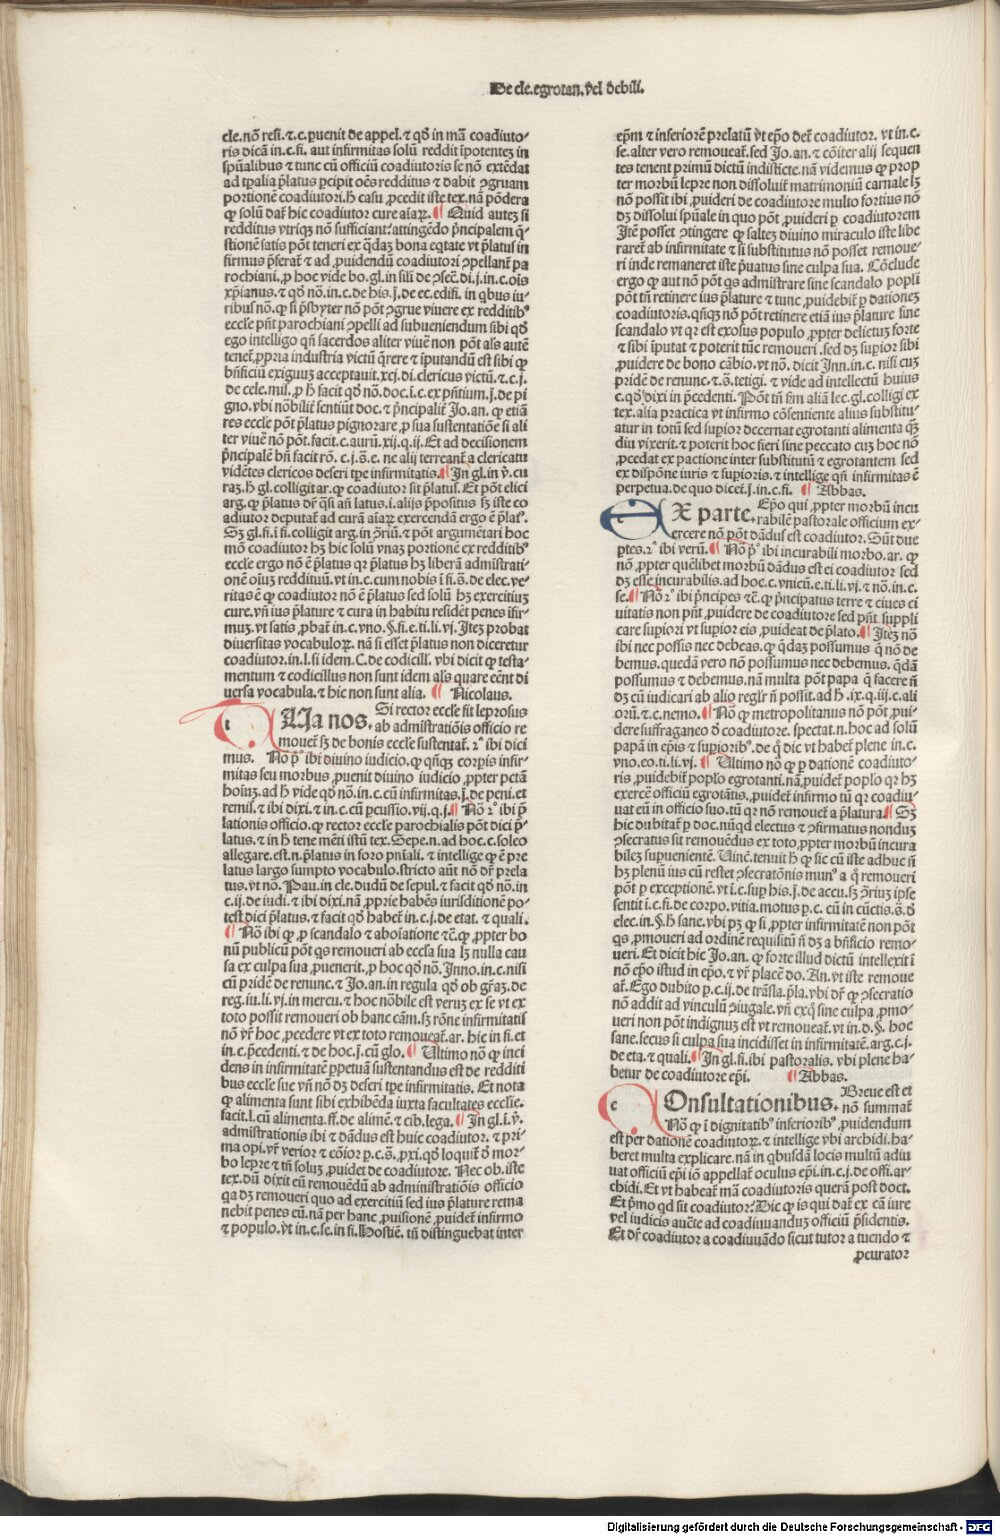 De cle.egrotan.vel debili.
cle.nō resi.⁊.c.ꝑuenit de appel.⁊ qđ in mā coadiuto-
ris dicā in.c.fi. aut infirmitas solū reddit īpotentez in
spūalibus ⁊ tunc cū officiū coadiutoris se nō extēdat
ad tꝑalia p̄latus ꝑcipit oēs redditus ⁊ dabit ꝯgruam
portionē coadiutori.h̄ casu ꝓcedit iste tex.nā pōdera
ꝙ solū dat̄ hic coadiutor cure aīaꝝ.¶ Quid autez si
redditus vtriqꝫ nō sufficiant?attingēdo p̄ncipalem q̄-
stionē satis pōt teneri ex q̄daꝫ bona eq̄tate vt p̄latus in
firmus p̄ferat̄ ⁊ ad ꝓuidendū coadiutori ꝯpellant̄ pa
rochiani.ꝓ hoc vide bo.gl.in sil̄i de ꝯsec̄.di.j.in.c.oīs
xp̄ianus.⁊ qđ nō.in.c.de his.j.de ec.edifi. in qbus iu-
ribus nō.ꝙ si p̄sbyter nō pōt ꝯgrue viuere ex redditibꝰ
eccl̄e pn̄t parochiani ꝯpelli ad subueniendum sibi qđ
ego intelligo qn̄ sacerdos aliter viuē non pōt al̄s autē
tenet̄ ꝓpria industria victū q̄rere ⁊ īputandū est sibi ꝙ
bn̄ficiū exiguuꝫ acceptauit.xcj.di.clericus victū.⁊.c.j.
de cele.mis. ꝓ h̄ facit qđ nō.doc.ī.c.ex pn̄tium.j.de pi
gno.vbi nōbilit̄ sentiūt doc.⁊ p̄ncipalit̄ Jo.an.ꝙ etiā
res eccl̄e pōt p̄latus pignorare ꝓ sua sustentatiōe si ali
ter viuē nō pōt.facit.c.aurū.xij.q.ij.Et ad decisionem
p̄ncipalē bn̄ facit rō.c.j.s̄.e. ne alij terreant̄ a clericatu
vidētes clericos deseri tꝑe infirmitatis.¶ In gl.in v̄.cu
raꝫ.h̄ gl.colligit ar.ꝙ coadiutor sit p̄latus. Et pōt elici
arg.ꝙ p̄latus dr̄ qsi an̄ latus .i. alijs p̄positus sꝫ iste co
adiutor deputat̄ ad curā aīaꝝ exercendā ergo ē p̄latꝰ.
Sꝫ gl.fi.ī fi.colligit arg.in ꝯriū.⁊ pōt argumētari hoc
mō coadiutor hꝫ hic solū vnaꝫ portionē ex redditibꝰ
eccl̄e ergo nō ē p̄latus qꝛ p̄latus hꝫ liberā admistrati-
onē oīuꝫ reddituū.vt in.c.cum nobis ī fi.s̄.de elec.ve-
ritas ē ꝙ coadiutor nō ē p̄latus sed solū hꝫ exercitiuꝫ
cure.vn̄ ius p̄lature ⁊ cura in habitu residēt penes īfir-
muꝫ.vt satis ꝓbat̄ in.c.vno.§.fi.e.ti.li.vj.Jteꝫ probat
diuersitas vocabuloꝝ. nā si esset p̄latus non diceretur
coadiutor.in.l.si idem.C.de codicill̄. vbi dicit ꝙ testa-
mentum ⁊ codicillus non sunt idem al̄s quare eēnt di
uersa vocabula.⁊ hic non sunt alia. ¶ Nicolaus.
t Ua nos. Si rector eccl̄e fit leprosus
ab admistratiōis officio re
mouet̄ sꝫ de bonis eccl̄e sustentat̄. 2ꝰ ibi dici
mus. No p̄ꝰ ibi diuino iudicio.ꝙ qn̄qꝫ corpis infir-
mitas seu morbus ꝓuenit diuino iudicio ꝓpter pctā
hoīuꝫ.ad h̄ vide qđ nō.in.c.cū infirmitas.j.de peni.et
remis̄.⁊ ibi dixi.⁊ in.c.cū ꝑcussio.vij.q.j.¶ No 2ꝰ ibi p̄
lationis officio.ꝙ rector eccl̄e parochialis pōt dici p̄-
latus.⁊ in h̄ tene mēti istū tex.Sepe.n.ad hoc.c.soleo
allegare.est.n.p̄latus in foro pn̄iali.⁊ intellige ꝙ ē pre
latus largo sumpto vocabulo.stricto aūt nō dr̄ prela
tus.vt nō. Pau.in cle.dudū de sepul.⁊ facit qđ nō.in
c.ij.de iudi.⁊ ibi dixi.nā ꝓprie habēs iurisditionē po-
test dici p̄latus.⁊ facit qđ habet̄ in.c.j.de etat.⁊ quali.
¶ No ibi ꝙ ꝓ scandalo ⁊ aboīatione ⁊c̄.ꝙ ꝓpter bo
nū publicū pōt qs remoueri ab eccl̄sia sua lꝫ nulla cau
sa ex culpa sua ꝓuenerit.ꝓ hoc qđ nō. Inno.in.c.nisi
cū pridē de renunc.⁊ Jo.an.in regula qđ ob gr̄aꝫ.de
reg.iu.li.vj.in mercu.⁊ hoc nōbile est veruꝫ ex se vt ex
toto possit remoueri ob hanc cām.sꝫ rōne infirmitatis
nō vr̄ hoc ꝓcedere vt ex toto remoueat̄.ar. hic in fi.et
in.c.p̄cedenti.⁊ de hoc.j.cū glo.¶ Ultimo nō ꝙ inci
dens in infirmitatē ꝑpetuā sustentandus est de redditi
bus eccl̄e sue vn̄ nō dꝫ deseri tꝑe infirmitatis. Et nota
ꝙ alimenta sunt sibi exhibēda iuxta facultates eccl̄ie.
facit.l.cū alimenta.ff.de alimē.⁊ cib.lega.¶ In gl.i.v̄.
admistrationis ibi ⁊ dādus est huic coadiutor. ⁊ pri-
ma opi.vr̄ verior ⁊ cōior ꝑ.c.s̄.ꝓxi.qđ loquit̄ đ mor-
bo lepre ⁊ tn̄ soluꝫ ꝓuidet de coadiutore. Nec ob.iste
tex.dū dixit eū remouēdū ab administratiōis officio
qa dꝫ remoueri quo ad exercitiū sed ius p̄lature rema
nebit penes eū.nā per hanc ꝓuisionē ꝓuidet̄ infirmo
⁊ populo.vt in.c.se.in fi.Hostiē. tn̄ distinguebat inter
ep̄m ⁊ inferiorē prelatū vt ep̄o det̄ coadiutor. vt in.c.
se.alter vero remoueat̄.sed Jo.an.⁊ cōiter alij sequen
tes tenent primū dictū indisticte.nā videmus ꝙ prop
ter morbū lepre non dissoluit̄ matrimoniū carnale lꝫ
nō possit ibi ꝓuideri de coadiutore multo fortius nō
dꝫ dissolui spūale in quo pōt ꝓuideri ꝑ coadiutorem
Jtē posset ꝯtingere ꝙ salteꝫ diuino miraculo iste libe
raret̄ ab infirmitate ⁊ si substitutus nō posset remoue-
ri inde remaneret iste p̄uatus sine culpa sua. Cōclude
ergo ꝙ aut nō pōt qs admistrare sine scandalo popli
pōt tn̄ retinere ius p̄lature ⁊ tunc ꝓuidebit̄ ꝑ dationeꝫ
coadiutoris.qn̄qꝫ nō pōt retinere etiā ius p̄lature sine
scandalo vt qꝛ est exosus populo ꝓpter delictuꝫ forte
⁊ sibi īputat ⁊ poterit tūc remoueri.sed dꝫ suꝑior sibi
ꝓuidere de bono cābio.vt nō. dicit Inn.in.c. nisi cuꝫ
pridē de renunc.⁊.s̄.tetigi.⁊ vide ad intellectū huius
c.qđ dixi in p̄cedenti. Pōt tn̄ sm̄ aliā lec.gl.colligi ex
tex.alia practica vt infirmo cōsentiente alius substitu-
atur in totū sed suꝑior decernat egrotanti alimenta qꝫ
diu vixerit.⁊ poterit hoc fieri sine peccato cuꝫ hoc nō
ꝓcedat ex pactione inter substitutū ⁊ egrotantem sed
ex dispōne iuris ⁊ suꝑioris.⁊ intellige qn̄ infirmitas ē
perpetua.de quo dicet̄.j.in.c.fi. ¶ Abbas.
e X parte. Ep̄o qui ꝓpter morbū incu
rabilē pastorale officium ex-
ercere nō pōt dādus est coadiutor. Sūt due
ptes.2ꝰ ibi verū.¶ No p̄ꝰ ibi incurabili morbo.ar. ꝙ
nō ꝓpter quēlibet morbū dādus est ei coadiutor sed
dꝫ esse incurabilis.ad hoc.c.vnicū.e.ti.li.vj.⁊ nō.in.c.
se.¶ No 2ꝰ ibi p̄ncipes ⁊c̄.ꝙ p̄ncipatus terre ⁊ ciues ci
uitatis non pn̄t ꝓuidere de coadiutore sed pn̄t suppli
care suꝑiori vt suꝑior eis ꝓuideat de p̄lato.¶ Jteꝫ nō
ibi nec possis nec debeas.ꝙ q̄daꝫ possumus q̄ nō de
bemus.quedā vero nō possumus nec debemus. q̄dā
possumus ⁊ debemus.nā multa pōt papa q̄ facere n̄
dꝫ cū iudicari ab alio reglr̄ n̄ possit.ad h̄.ix.q.iij.c.ali
orū.⁊.c.nemo.¶ No ꝙ metropolitanus nō pōt ꝓui-
dere suffraganeo đ coadiutore. spectat.n.hoc ad solū
papā in ep̄is ⁊ suꝑioribꝰ.de q̄ dic vt habet̄ plene in.c.
vno.eo.ti.li.vj. ¶ Ultimo nō ꝙ ꝑ dationē coadiuto-
ris ꝓuidebit̄ poplo egrotanti.nā ꝓuidet̄ poplo qꝛ hꝫ
exercē officiū egrotātis.ꝓuidet̄ infirmo tū qꝛ coadiu-
uat eū in officio suo.tū qꝛ nō remouet̄ a p̄latura.¶ Sꝫ
hic dubitat̄ ꝑ doc.nūqd electus ⁊ ꝯfirmatus nonduꝫ
ꝯsecratus sit remouēdus ex toto ꝓpter morbū incura
bileꝫ suꝑuenientē. Uincē.tenuit h̄ ꝙ sic cū iste adhuc n̄
hꝫ plenū ius cū restet ꝯsecratōnis munꝰ a q̄ remoueri
pōt ꝑ exceptionē.vt ī.c.suꝑ his.j.de accu.sꝫ ꝯriuꝫ ipse
sentit ī.c.fi.de corpo.vitia.motus ꝑ.c. cū in cūctis.s̄.đ
elec.in.§.h̄ sane.vbi pꝫ ꝙ si ꝓpter infirmitatē non pōt
qs ꝓmoueri ad ordinē requisitū n̄ dꝫ a bn̄ficio remo-
ueri. Et dicit hic Jo.an.ꝙ forte illud dictū intellexit ī
nō ep̄o istud in ep̄o.⁊ vr̄ placē do. An.vt iste remoue
at̄. Ego dubito ꝑ.c.ij.de trāsla.p̄la.vbi dr̄ ꝙ ꝯsecratio
nō addit ad vinculū ꝯiugale.vn̄ exq̄ sine culpa ꝓmo-
ueri non pōt indignuꝫ est vt remoueat̄.vt in.d.§. hoc
sane.secus si culpa sua incidisset in infirmitatē.arg.c.j.
de eta.⁊ quali.¶ In gl.fi.ibi pastoralis. vbi plene ha-
betur de coadiutore ep̄i. ¶ Abbas.
c Onsultationibus. Breue est et
nō summat̄
No ꝙ ī dignitatibꝰ inferioribꝰ ꝓuidendum
est per dationē coadiutoꝝ.⁊ intellige vbi archidi.ha-
beret multa explicare.nā in qbusdā locis multū adiu
uat officiū ep̄i iō appellat̄ oculus ep̄i.in.c.j.de offi.ar-
chidi. Et vt habeat̄ mā coadiutoris querā post doct.
Et p̄mo qd sit coadiutor? Dic ꝙ is qui dat̄ ex cā iure
vel iudicis auc̄te ad coadiuuanduꝫ officiū p̄sidentis.
Et dr̄ coadiutor a coadiuuādo sicut tutor a tuendo ⁊
ꝓcurator
Digitalisierung gefördert durch die Deutsche Forschungsgemeinschaft - DFG